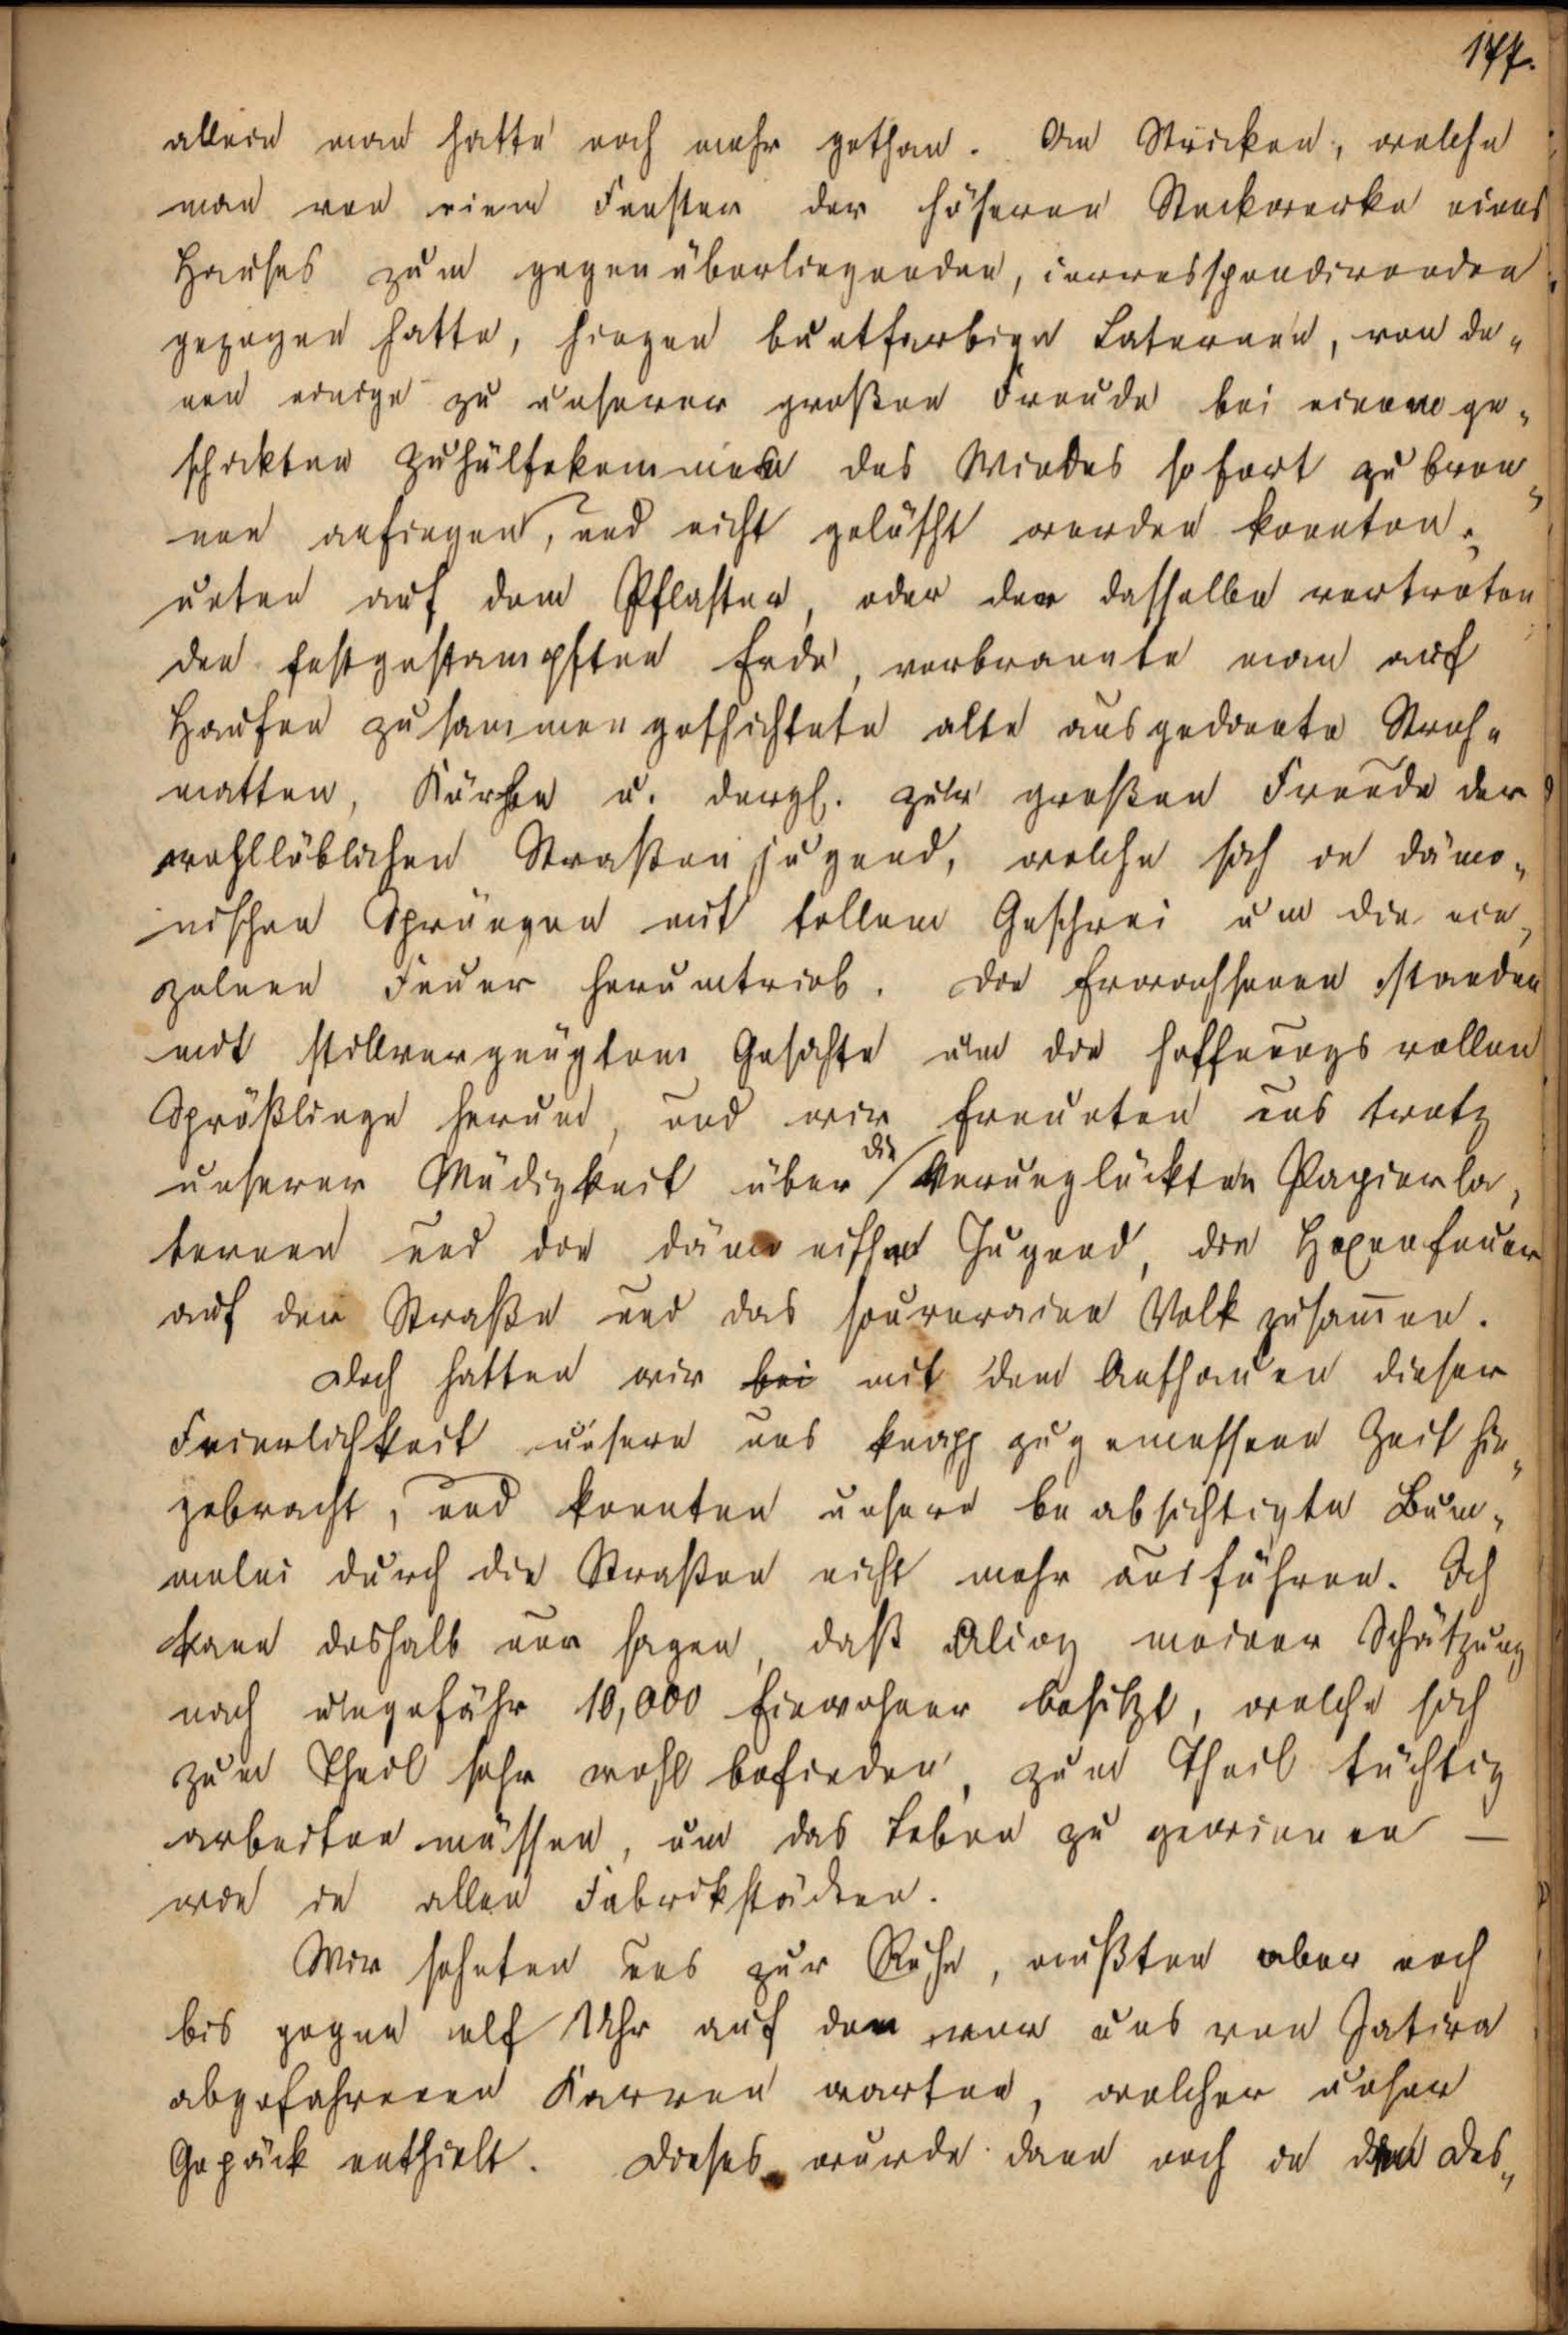 177.
allein man hatte noch mehr gethan. An Stricken, welche
man von einem Fenster der höheren Stockwerke eines
Hauses zum gegenüberliegenden, correspondirenden
gezogen hatte, hingen buntfarbige Laternen, von de„
nen einige zu unserer großen Freude bei einem ge„
schickten Zuhülfekommen des Windes sofort zu bren„
nen anfingen, und nicht gelöscht werden konnten.
unten auf dem Pflaster, oder der dasselbe vertreten
den festgestampften Erde, verbrannte man auf
Haufen zusammengeschichtete alte ausgediente Stroh„
matten, Körbe u. dergl. zur großen Freude der
wohllöblichen Straßenjugend, welche sich in dämo„
nischen Sprüngen mit tollem Geschrei um die ein„
zelnen Feuer herumtrieb. Die Erwachsenen standen
mit stillvergnügtem Gesichte um die hoffnungsvollen
Sprößlinge herum, und wir freuten uns trotz
unserer Müdigkeit über die verunglückten Papierla„
ternen und die dämonischen Jugend, die Hexenfeuer
auf der Straße und das souveraine Volk zusam̅en.
Doch hatten wir bei mit dem Anschauen dieser
Feierlichkeit unsere uns knapp zugemessene Zeit hin„
gebracht, und konnten unsere beabsichtigte Bum„
melei durch die Straßen nicht mehr ausführen. Ich
kann deshalb nur sagen, daß Alcoy meiner Schätzung
nach ungefähr 10,000 Einwohner besitzt, welche sich
zum Theil sehr wohl befinden, zum Theil tüchtig
arbeiten müssen, um das Leben zu gewinnen –
wie in allen Fabrikstädten.
Wir sehnten uns zur Ruhe, mußten aber noch
bis gegen elf Uhr auf den vor uns von Jativa
abgefahrenen Karren warten, welcher unser
Gepäck enthielt. Dieses wurde dann noch in den Des„